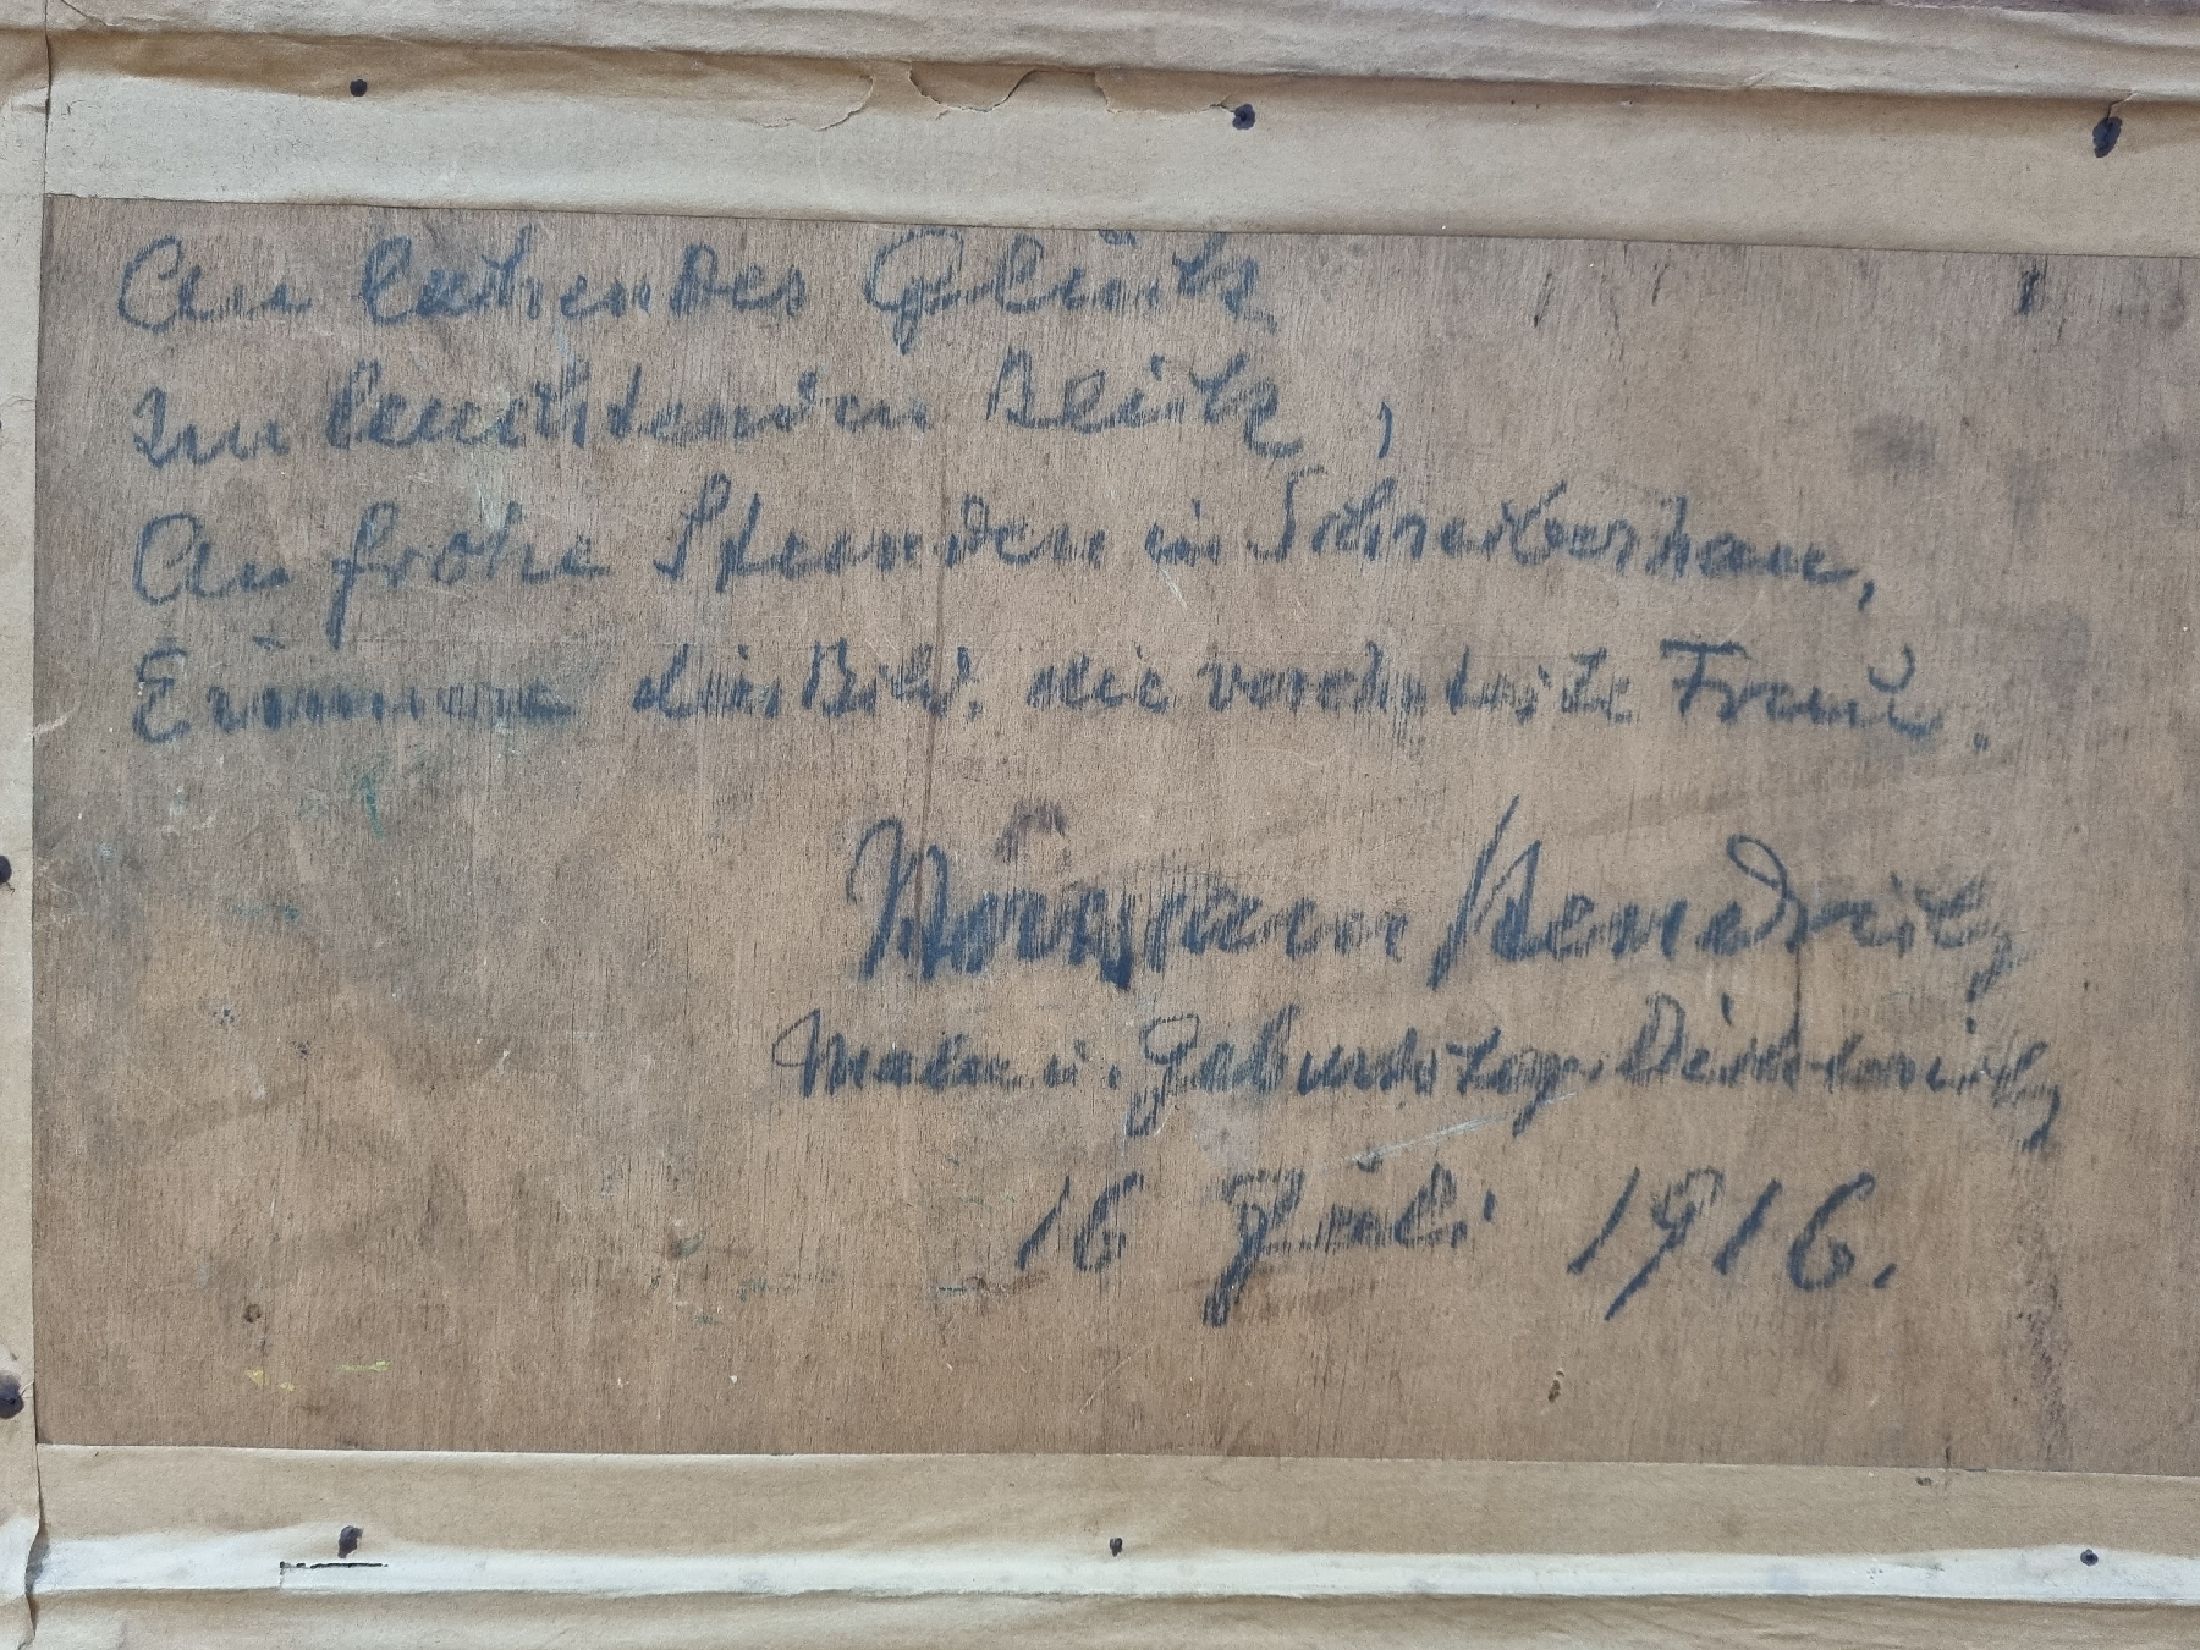 An lachendes Glück
Im leuchtenden Blick,
An frohe Stunden in Schreiberhau,
Erinnere dies Bild, die verehrteste Frau.
Hermann Hendrich
Maler u. Geburtstag
16 Juli 1916.